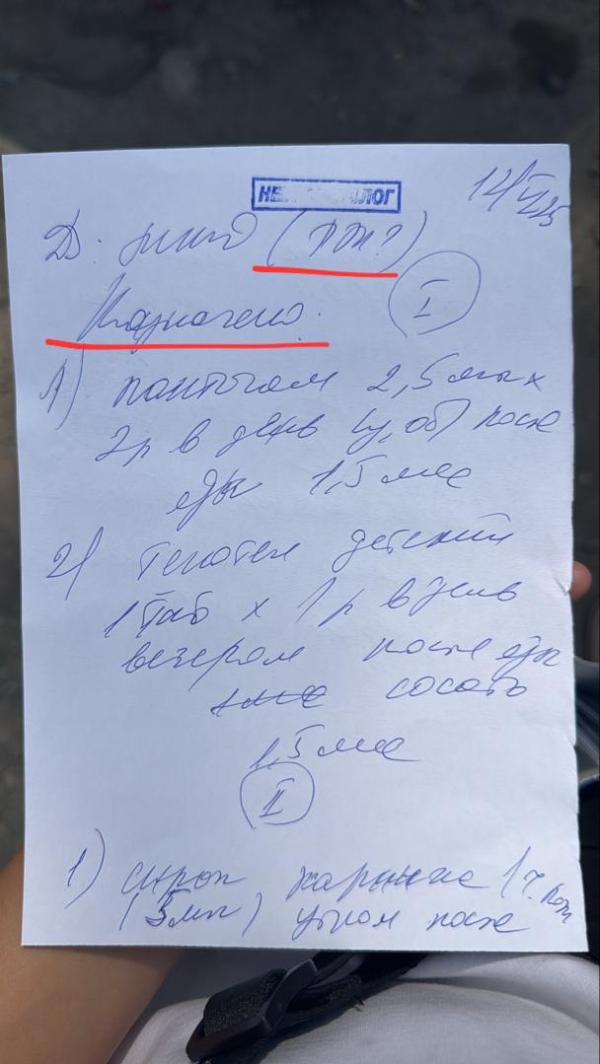 НЕ ЛОГ
12/VI 25
Ds:
Назначено:
I
1) Пантогам 2,5 мл х
2р в день (у, об) после
еды 1,5 мес
2) Тенотен детский
1 таб х 1 р в день
вечером после еды
сосать
1,5 мес
II
1) сироп 1 ч. лож
(5мл) утром после